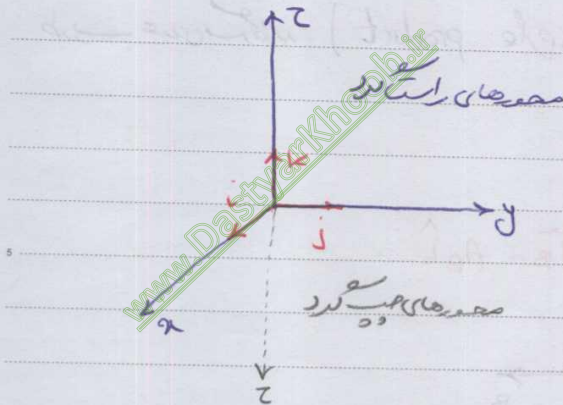 z
محورهای راستگرد
k
i
j
y
5
محورهای چپگرد
x
z
www.DastyarKhoob.ir